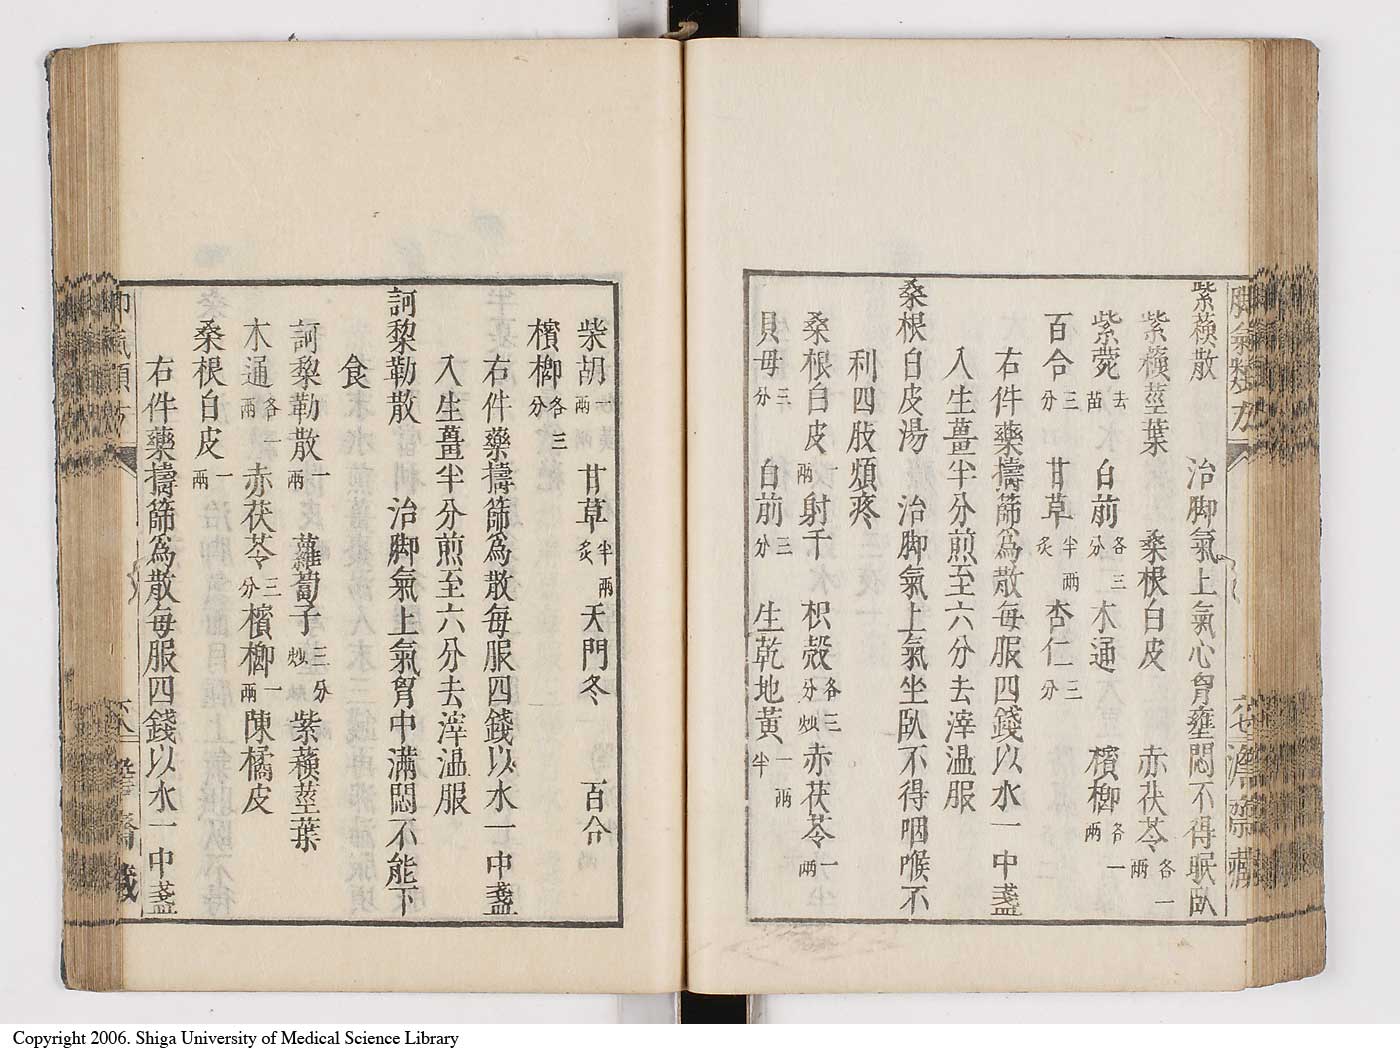 紫蘓散　治脚氣上氣心胷壅悶不得眠臥
紫蘓莖葉　桑根白皮　赤茯苓各一兩
紫菀去苗　白前各三分　木通　檳榔各一兩
百合三分　甘草炙半兩　杏仁三分
右件藥擣篩為散每服四錢以水一中盞
入生薑半分煎至六分去滓温服
桑根白皮湯　治脚氣上氣坐臥不得咽喉不
利四肢煩疼
桑根白皮兩　射干　枳殼各三分炒　赤茯苓一兩
貝母三分　白前三分　生乾地黃一兩半
柴胡一兩　甘草炙半兩　天門冬　百合
檳榔各三分
右件藥擣篩為散每服四錢以水一中盞
入生薑半分煎至六分去滓温服
訶黎勒散　治脚氣上氣胷中滿悶不能下
食
訶黎勒散一兩　蘿蔔子三分炒　紫蘓莖葉
木通各一兩　赤茯苓三分　檳榔一兩　陳橘皮
桑根白皮一兩
右件藥擣篩為散每服四錢以水一中盞
Copyright 2006. Shiga University of Medical Science Library